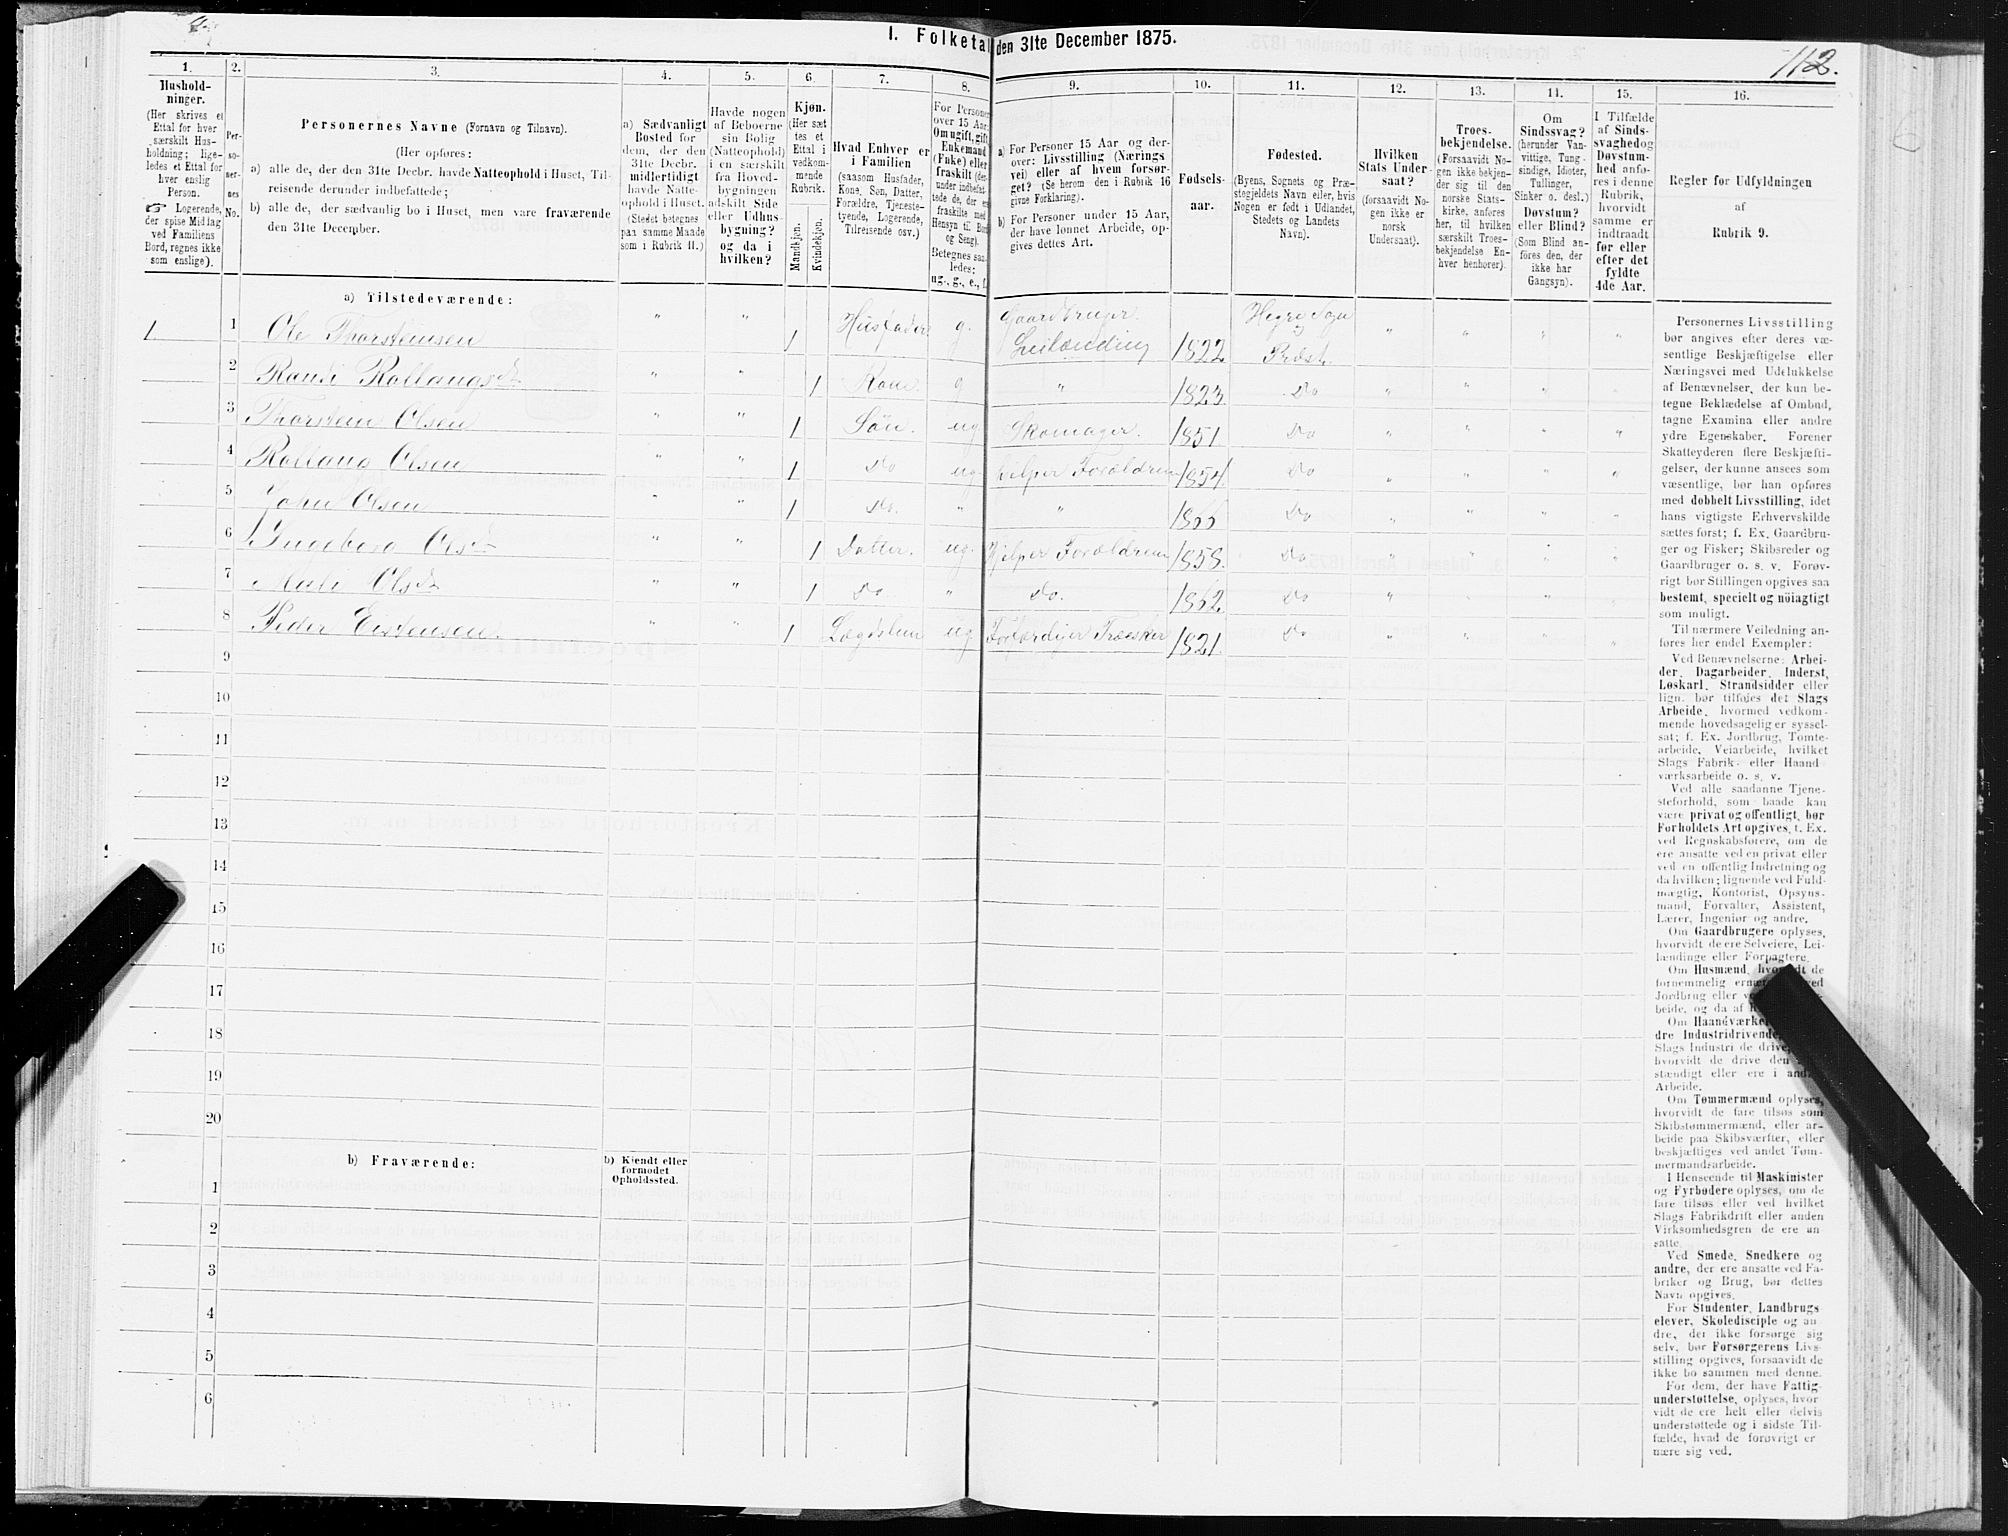 I. Folketal den 31te December 1875.
112.
1.
2.
3.
4.
5.
6.
7.
8.
9.
10.
11.
12.
13.
14.
15.
16.
Hushold-
ninger.
(Her skrives et
Ettal for hver
særskilt Hus-
holdning; lige-
ledes et Ettal for
hver enslig
Person.
☞ Logerende,
der spise Middag
ved Familiens
Bord, regnes ikke
som enslige).
Per-
so-
ner-
nes
No.
Personernes Navne (Fornavn og Tilnavn).
(Her opføres:
a) alle de, der den 31te Decbr. havde Natteophold i Huset, Til-
reisende derunder indbefattede;
b) alle de, der sædvanlig bo i Huset, men vare fraværende
den 31te December.
a) Sædvanligt
Bosted for
dem, der den
31te Decbr.
midlertidigt
havde Natte-
ophold i Huset.
(Stedet betegnes
paa samme Maade
som i Rubrik 11.)
Havde nogen
af Beboerne
sin Bolig
(Natteophold)
i en særskilt
fra Hoved-
bygningen
adskilt Side
eller Udhus-
bygning?
og da i
hvilken?
Kjøn.
(Her sæt
tes et
Ettal i
vedkom-
mende
Rubrik.
Mandkjøn.
Kvindekjøn.
Hvad Enhver er
i Familien
(saasom Husfader,
Kone, Søn, Datter,
Forældre, Tjeneste-
tyende, Logerende,
Tilreisende osv.)
For Personer
over 15 Aar:
Om ugift, gift,
Enkemand
(Enke) eller
fraskilt
Betegnes saa-
ledes:
ug., g., e., f.
a) For Personer 15 Aar og der-
over: Livsstilling (Nærings
vei) eller af hvem forsør-
get? (Se herom den i Rubrik 16
givne Forklaring).
b) For Personer under 15 Aar,
der have lønnet Arbeide, op-
gives dettes Art.
Fødsels-
aar.
Fødested.
(Byens, Sognets og Præ-
stegjeldets Navn eller, hvis
Nogen er født i Udlandet,
Stedets og Landets
Navn).
Hvilken
Stats Under-
saat?
(forsaavidt No-
gen ikke er
norsk
Undersaat).
Troes-
bekjendelse.
(Forsaavidt No-
gen ikke bekjen-
der sig til den
norske Stats-
kirke, anføres
her, til hvilken
særskilt Troes-
bekjendelse En-
hver henhører).
Om
Sindssvag?
(herunder Van-
vittige, Tung-
sindige, Idioter,
Tullinger,
Sinker o. desl.)
Døvstum?
eller Blind?
(Som Blind an-
føres den, der
ikke har
Gangsyn).
I Tilfælde
af Sinds-
svaghed og
Døvstum-
hed anfø-
res i denne
Rubrik,
hvorvidt
samme er
indtraadt
før eller
efter det
fyldte
4de Aar.
Regler for Udfyldningen
af
Rubrik 9.
a) Tilstedeværende:
1 1 Ole Thorsteinsen " " 1 Husfader g. Gaardbruger Leilænding 1822 Hegre Sogn Præst. " " " "
2 Randi Rollaugsd. " " 1 Kone g " 1823. Do " " " "
3 Thorstein Olsen " " 1 Søn. ug Skomager. 1851. Do " " " "
4 Rollaug Olsen " " 1 Do ug. hjelper Forældrene 1854. Do " " " "
5 John Olsen " " 1 Do. " " 1866 Do " " " "
6 Ingeborg Olsd. " " 1 Datter. ug. Hjelper Forældrene 1858. Do " " " "
7 Mali Olsd. " " 1 Do. " Do. 1862. Do " " " "
8 Peder Eistensen. " " 1 Lægdslem ug. Træesker 1821. Do " " " "
9
10
11
12
13
14
15
16
17
18
19
20
b) Fraværende:
b) Kjendt eller
formodet
Opholdssted.
1
2
3
4
5
6
Personernes Livsstilling
bør angives efter deres væ-
sentlige Beskjæftigelse eller
Næringsvei med Udelukkelse
af Benævnelser, der kun be-
tegne Beklædelse af Ombud,
tagne Examina eller andre
ydre Egenskaber. Forener
Skatteyderen flere Beskjæfti-
gelser, der kunne ansees som
væsentlige, bør han opføres
med dobbelt Livsstilling, idet
hans vigtigste Erhvervskilde
sættes først; f. Ex. Gaardbru-
ger og Fisker; Skibsreder og
Gaardbruger o. s. v. Forøv-
rigt bør Stillingen opgives saa
bestemt, specielt og nöiagtigt
som muligt.
Til nærmere Veiledning an-
føres her endel Exempler:
Ved Benævnelserne: Arbei-
der, Dagarbeider, Inderst,
Løskarl, Strandsidder eller
lign. bør tilføies det Slags
Arbeide, hvormed vedkom-
mende hovedsagelig er syssel-
sat; f. Ex. Jordbrug, Tomte-
arbeide, Veiarbeide, hvilket
Slags Fabrik- eller Haand
værksarbeide o. s. v.
Ved alle saadanne Tjene-
steforhold, som baade kan
være privat og offentligt, bør
Forholdets Art opgives, t. Ex.
ved Regnskabsførere, om de
ere ansatte ved en privat eller
ved en offentlig Indretning og
da hvilken; lignende ved Fuld-
mægtig, Kontorist, Opsyns-
mand, Forvalter, Assistent,
Lærer, Ingeniør og andre.
Om Gaardbrugere oplyses,
hvorvidt de ere Selveiere, Lei-
lændinge eller Forpagtere.
Om Husmænd, hvorvidt de
fornemmelig ernære sig ved
Jordbrug eller
beide, og da af
Om Haandværkere
dre Industridrivende
Slags Industri de drive,
hvorvidt de drive den
stændigt eller ere i
Arbeide.
Om Tømmermænd oplyses,
hvorvidt de fare tilsøs som
Skibstømmermænd, eller ar-
beide paa Skibsværfter, eller
beskjæftiges ved andet Tøm-
mermandsarbeide.
I Henseende til Maskinister
og Fyrbødere oplyses, om de
fare tilsøs eller ved hvilket
Slags Fabrikdrift eller anden
Virksomhedsgren de ere an
satte.
Ved Smede, Snedkere og
andre, der ere ansatte ved Fa-
briker og Brug, bør dettes
Navn opgives.
For Studenter, Landbrugs
elever, Skoledisciple og an
dre, der ikke forsørge sig
selv, bør Forsørgerens Livs-
stilling opgives, forsaavidt de
ikke bo sammen med denne.
For dem, der have Fattig-
understøttelse, oplyses, hvor
vidt de ere helt eller delvis
understøttede og i sidste Til-
fælde, hvad de forøvrigt er
nære sig ved.